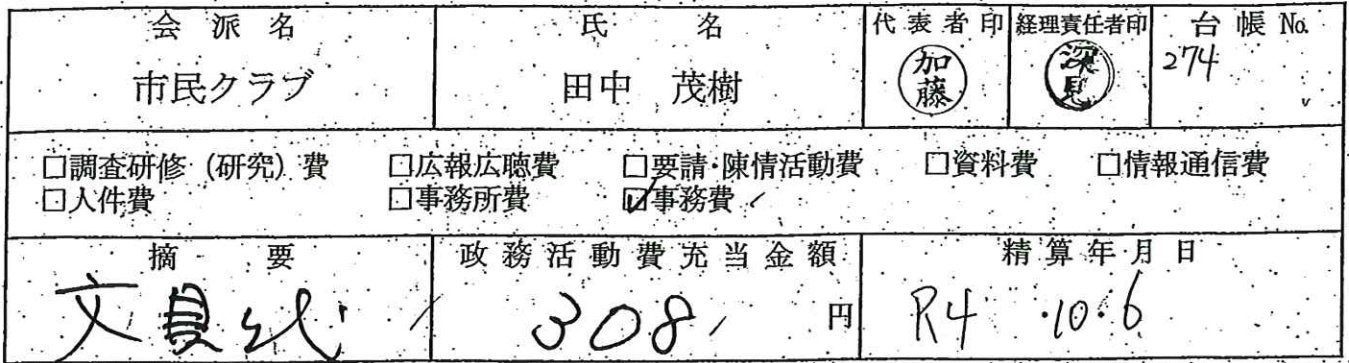 会派名 氏名 代表者印 経理責任者印 台帳No.
市民クラブ 田中 茂樹 加藤 深見 274
□調査研修(研究)費 □広報広聴費 □要請・陳情活動費 □資料費 □情報通信費
□人件費 □事務所費 ☑事務費
摘要 政務活動費充当金額 精算年月日
文具代 308円 R4・10・6